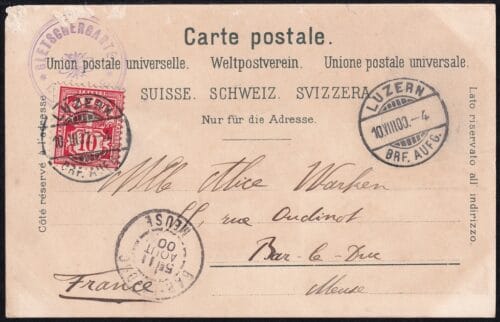 GLETSCHERGART
Carte postale.
Union postale universelle. Weltpostverein. Unione postale universale.
SUISSE. SCHWEIZ. SVIZZERA
Nur für die Adresse.
Côté réservé à l'adresse
Lato riservato all' indirizzo.
LUZERN
10
BRF. AUFG.
LUZERN
10.VIII.00.-4
BRF. AUFG.
Mlle Alice
55, rue Oudinot
Bar-le-Duc
Meuse
France
BAR-LE-DUC
11
AOUT
00
MEUSE